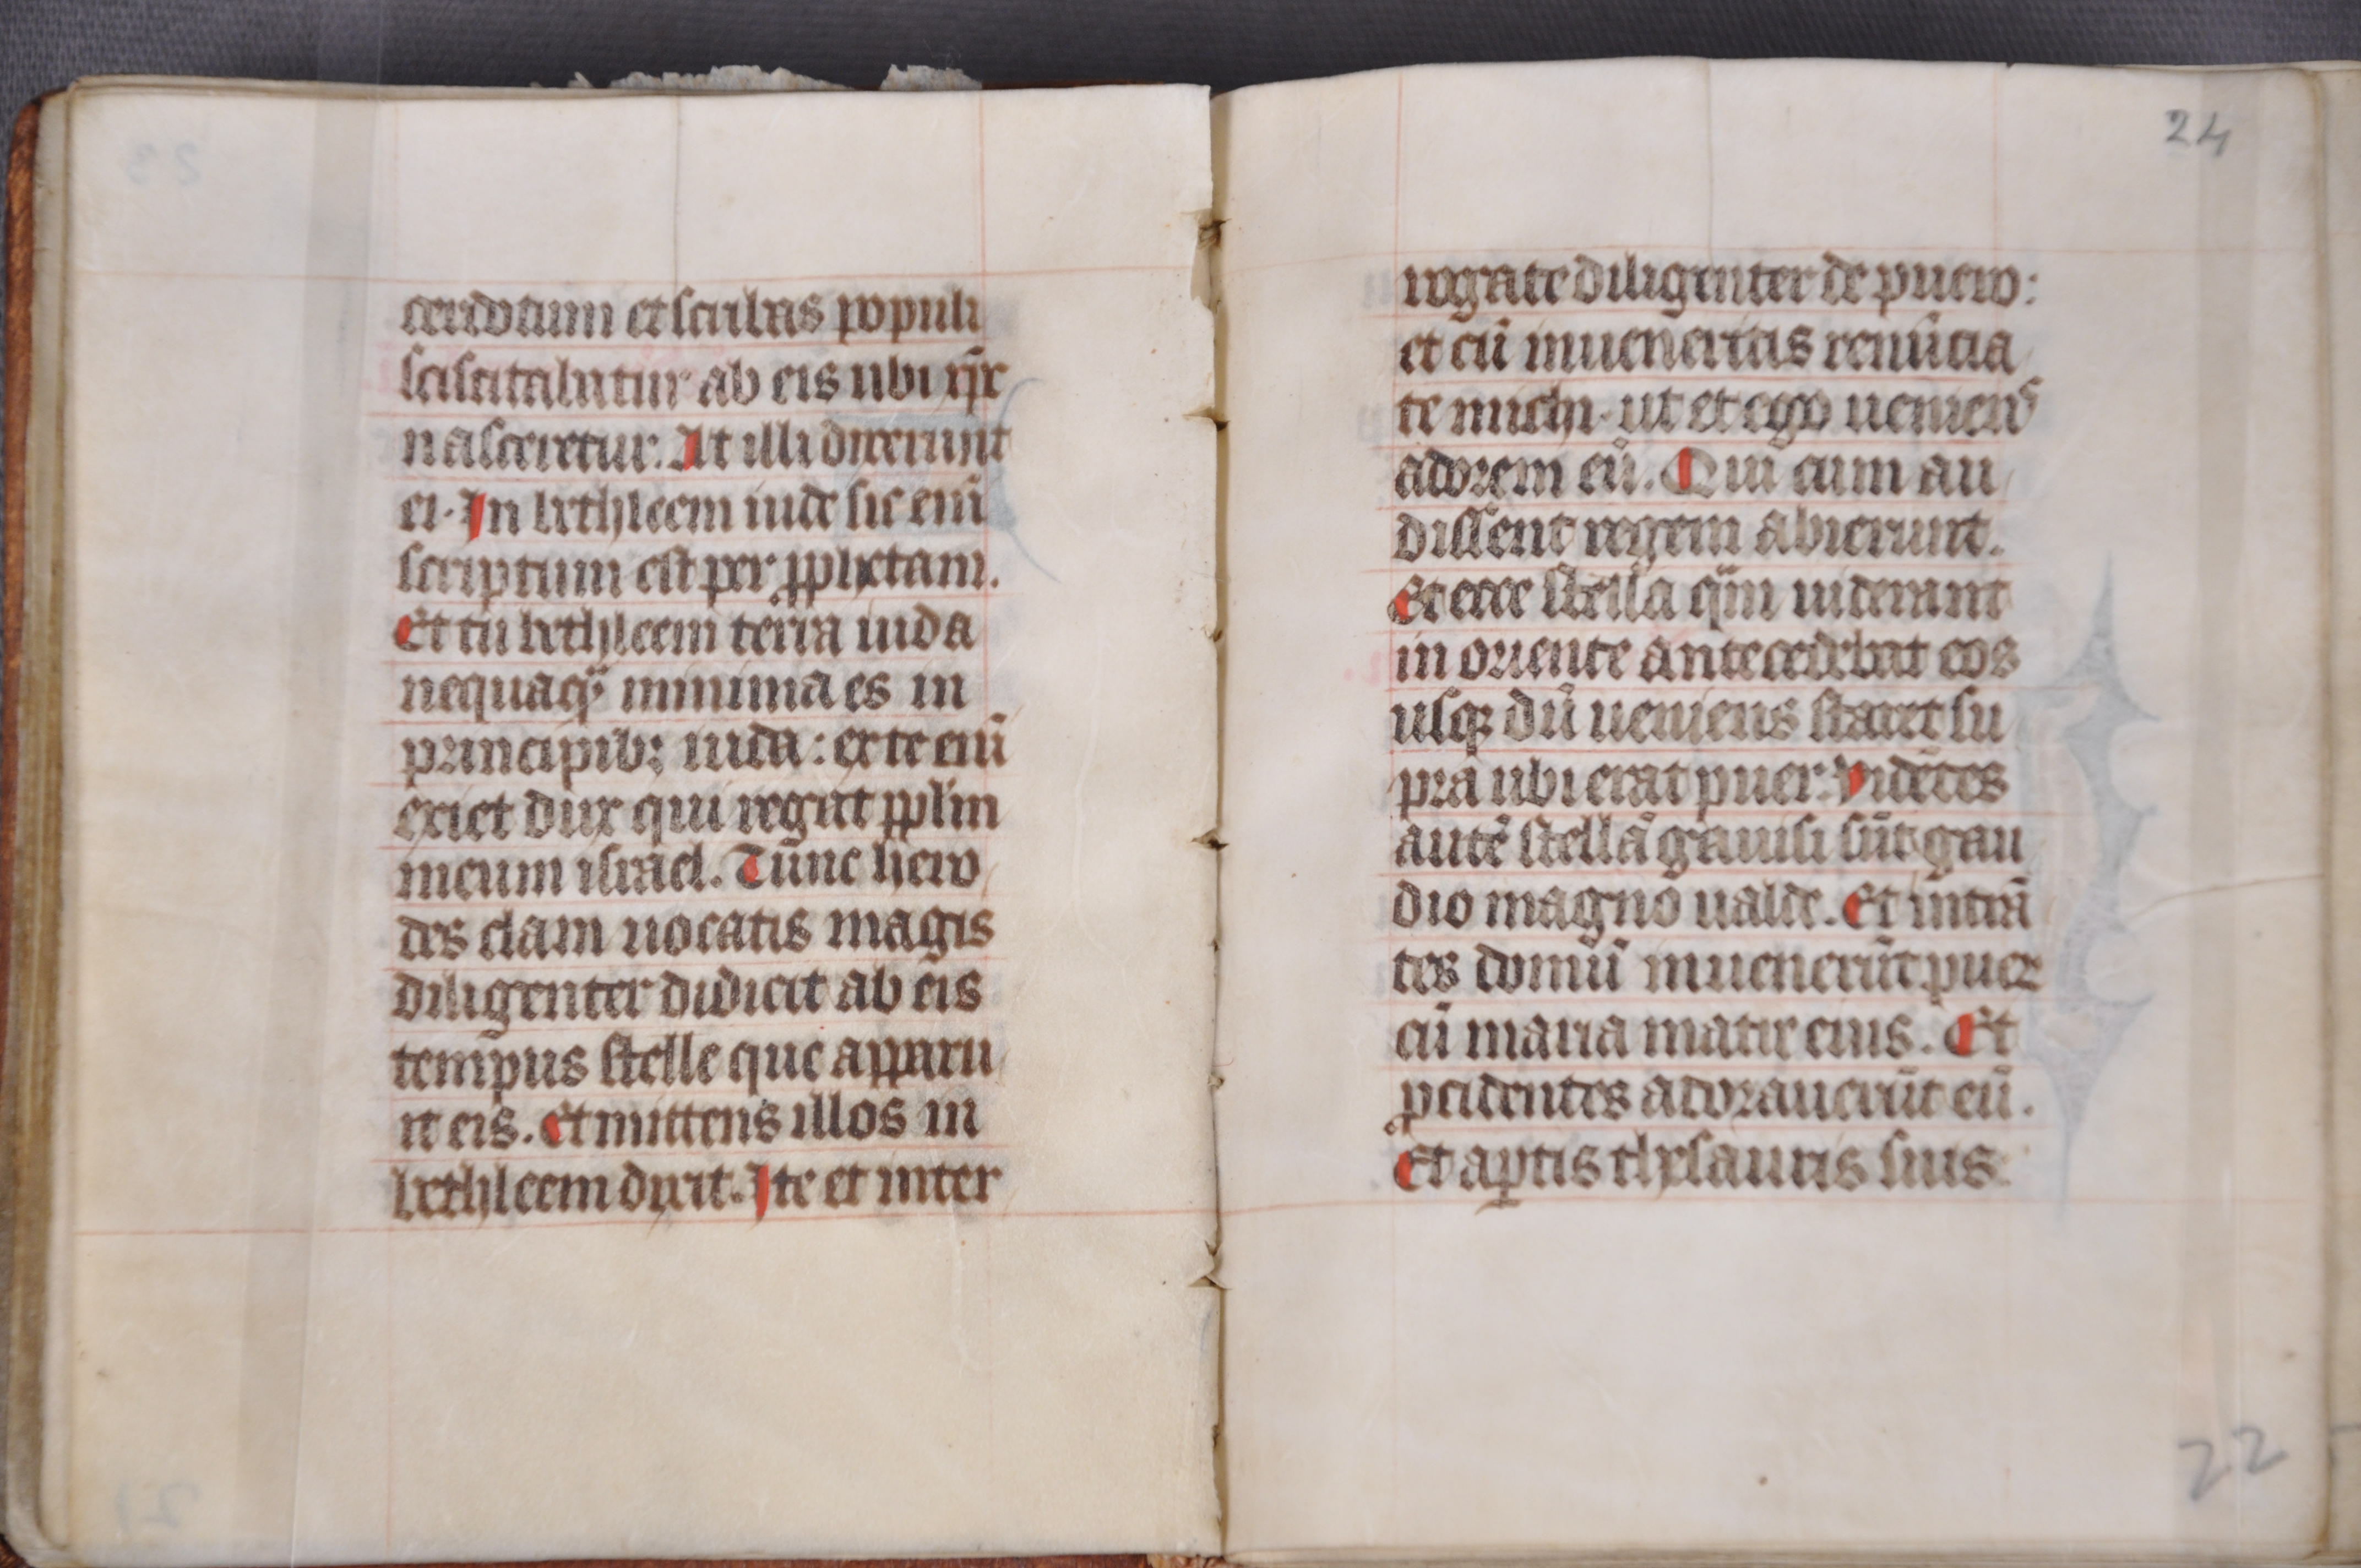 cerdotum et scribas populi
sciscitabatur ab eis ubi xp̄c
nasceretur. At illi dixerunt
ei. In bethleem iude sic eni͂
scriptum est per ꝓphetam.
Et tu bethleem terra iuda
nequaq̈ minima es in
principibꝫ iuda: ex te eni͂
exiet dux qui regat pplm̄
meum israel. Tunc hero
des clam uocatis magis
diligenter didicit ab eis
tempus stelle que apparu
it eis. Et mittens illos in
bethleem dixit. Ite et inter
24
rogate diligenter de puero:
et cū inueneritis renūcia
te michi. ut et ego ueniens
adorem eū. Qui cum au
dissent regem abierunt.
Et ecce stella qm̄ uiderant
in oriente antecedebat eos
usqꝫ dū ueniens staret su
pra ubi erat puer. Vidētes
autē stellā gauisi sūt gau
dio magno ualde. Et intrā
tes domū inuenerūt puer
cū maria matre eius. Et
ꝓcidentes adorauerūt eū.
Et aꝑtis thesauris suis
22